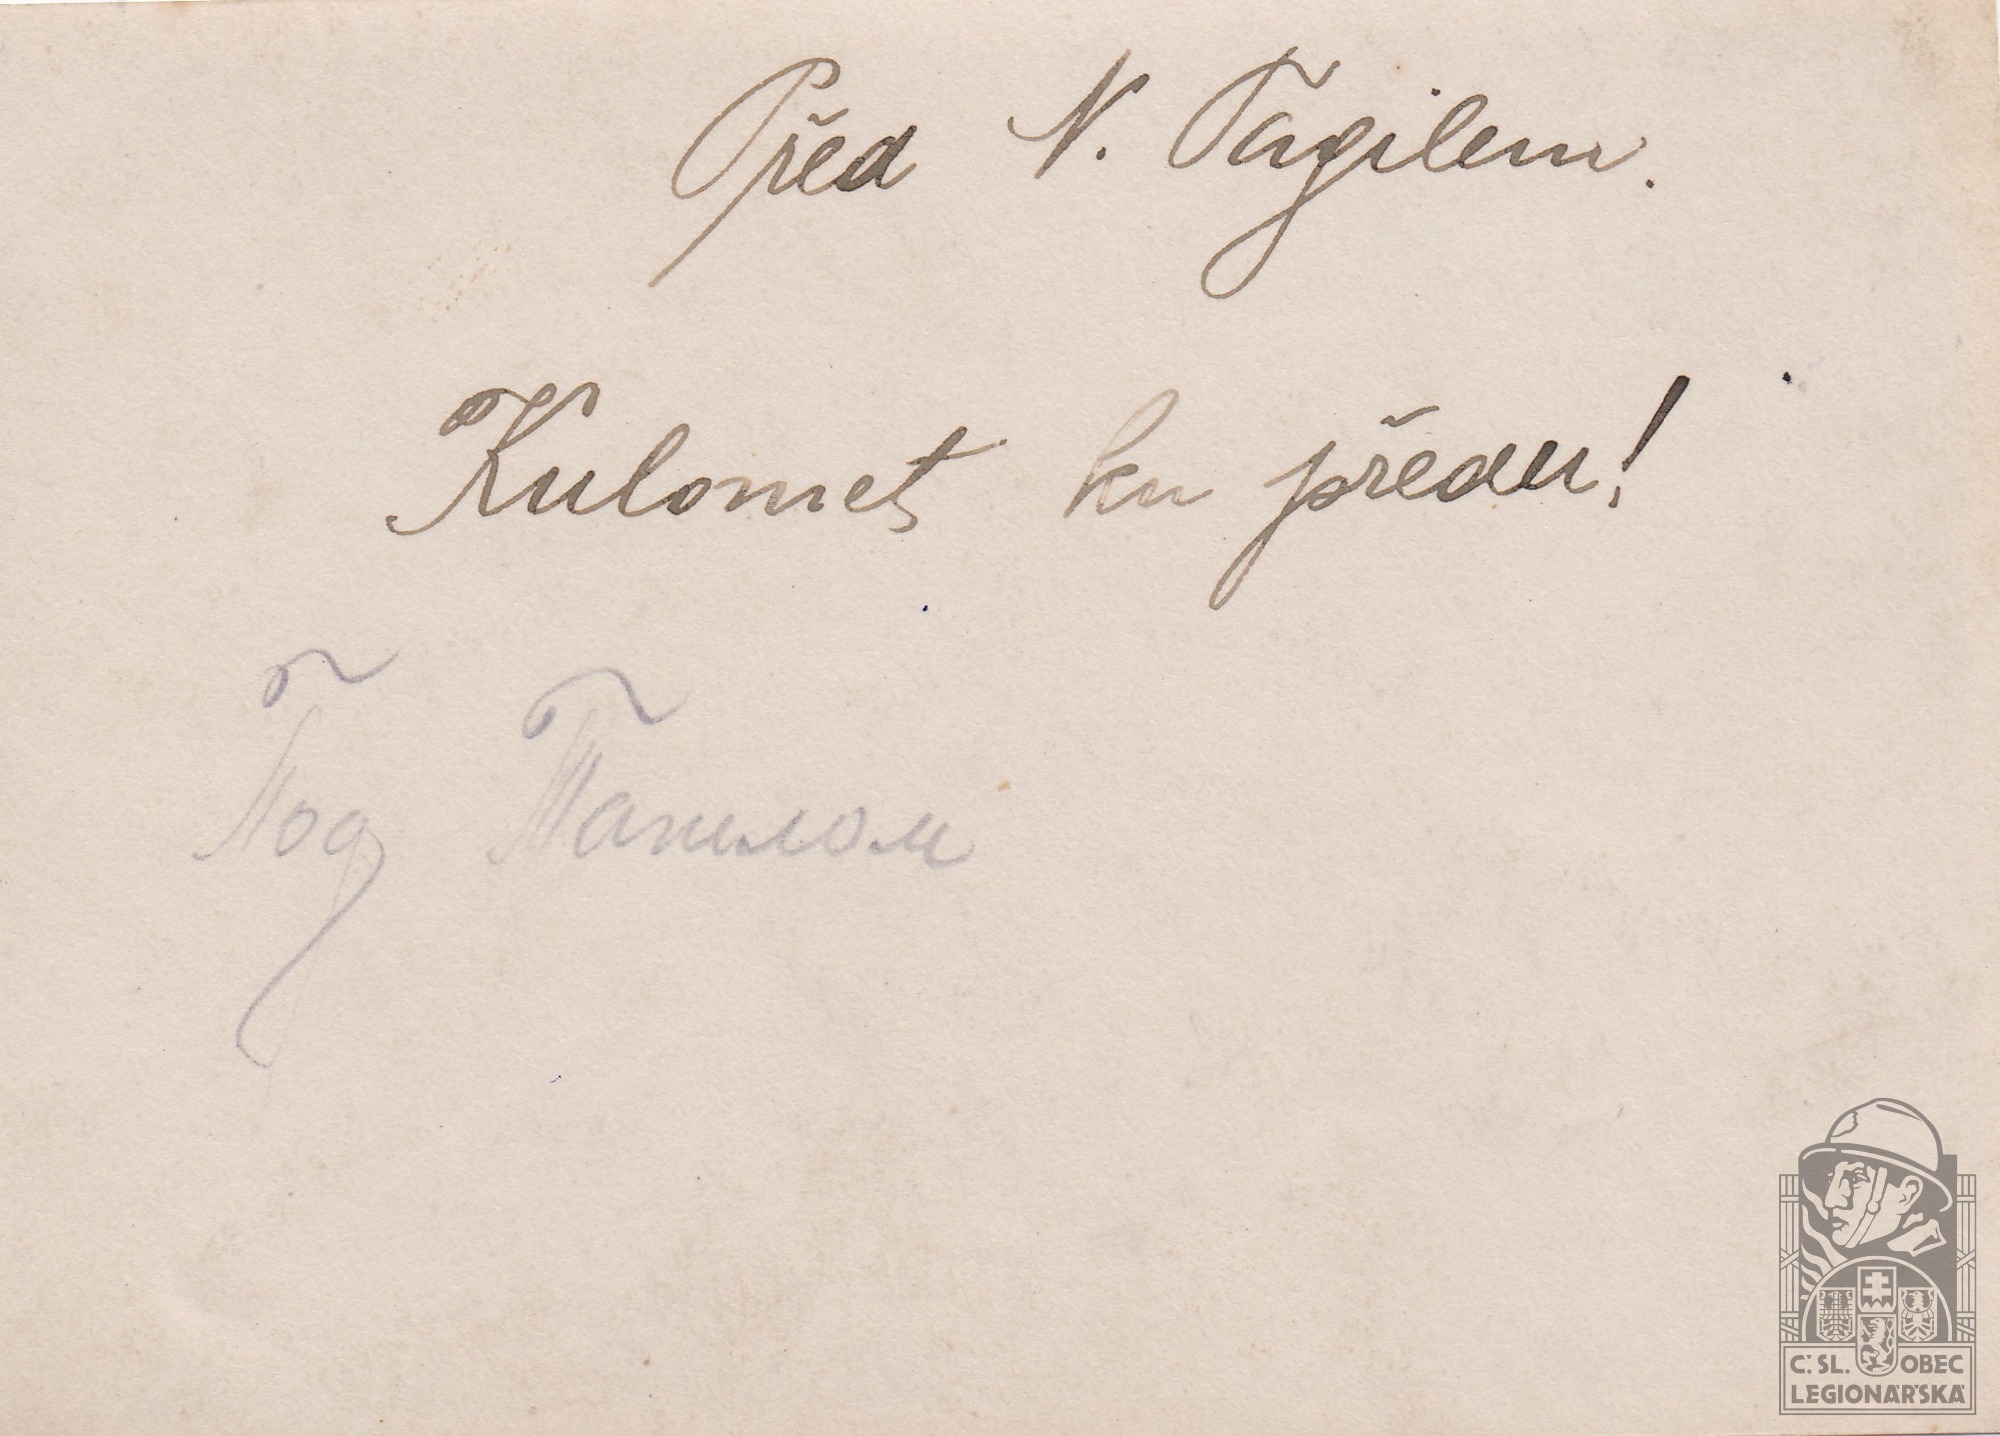 Před N. Tagilem.
Kulomet ku předu!
Под Тагилом
Č. SL. OBEC
LEGIONÁŘSKÁ